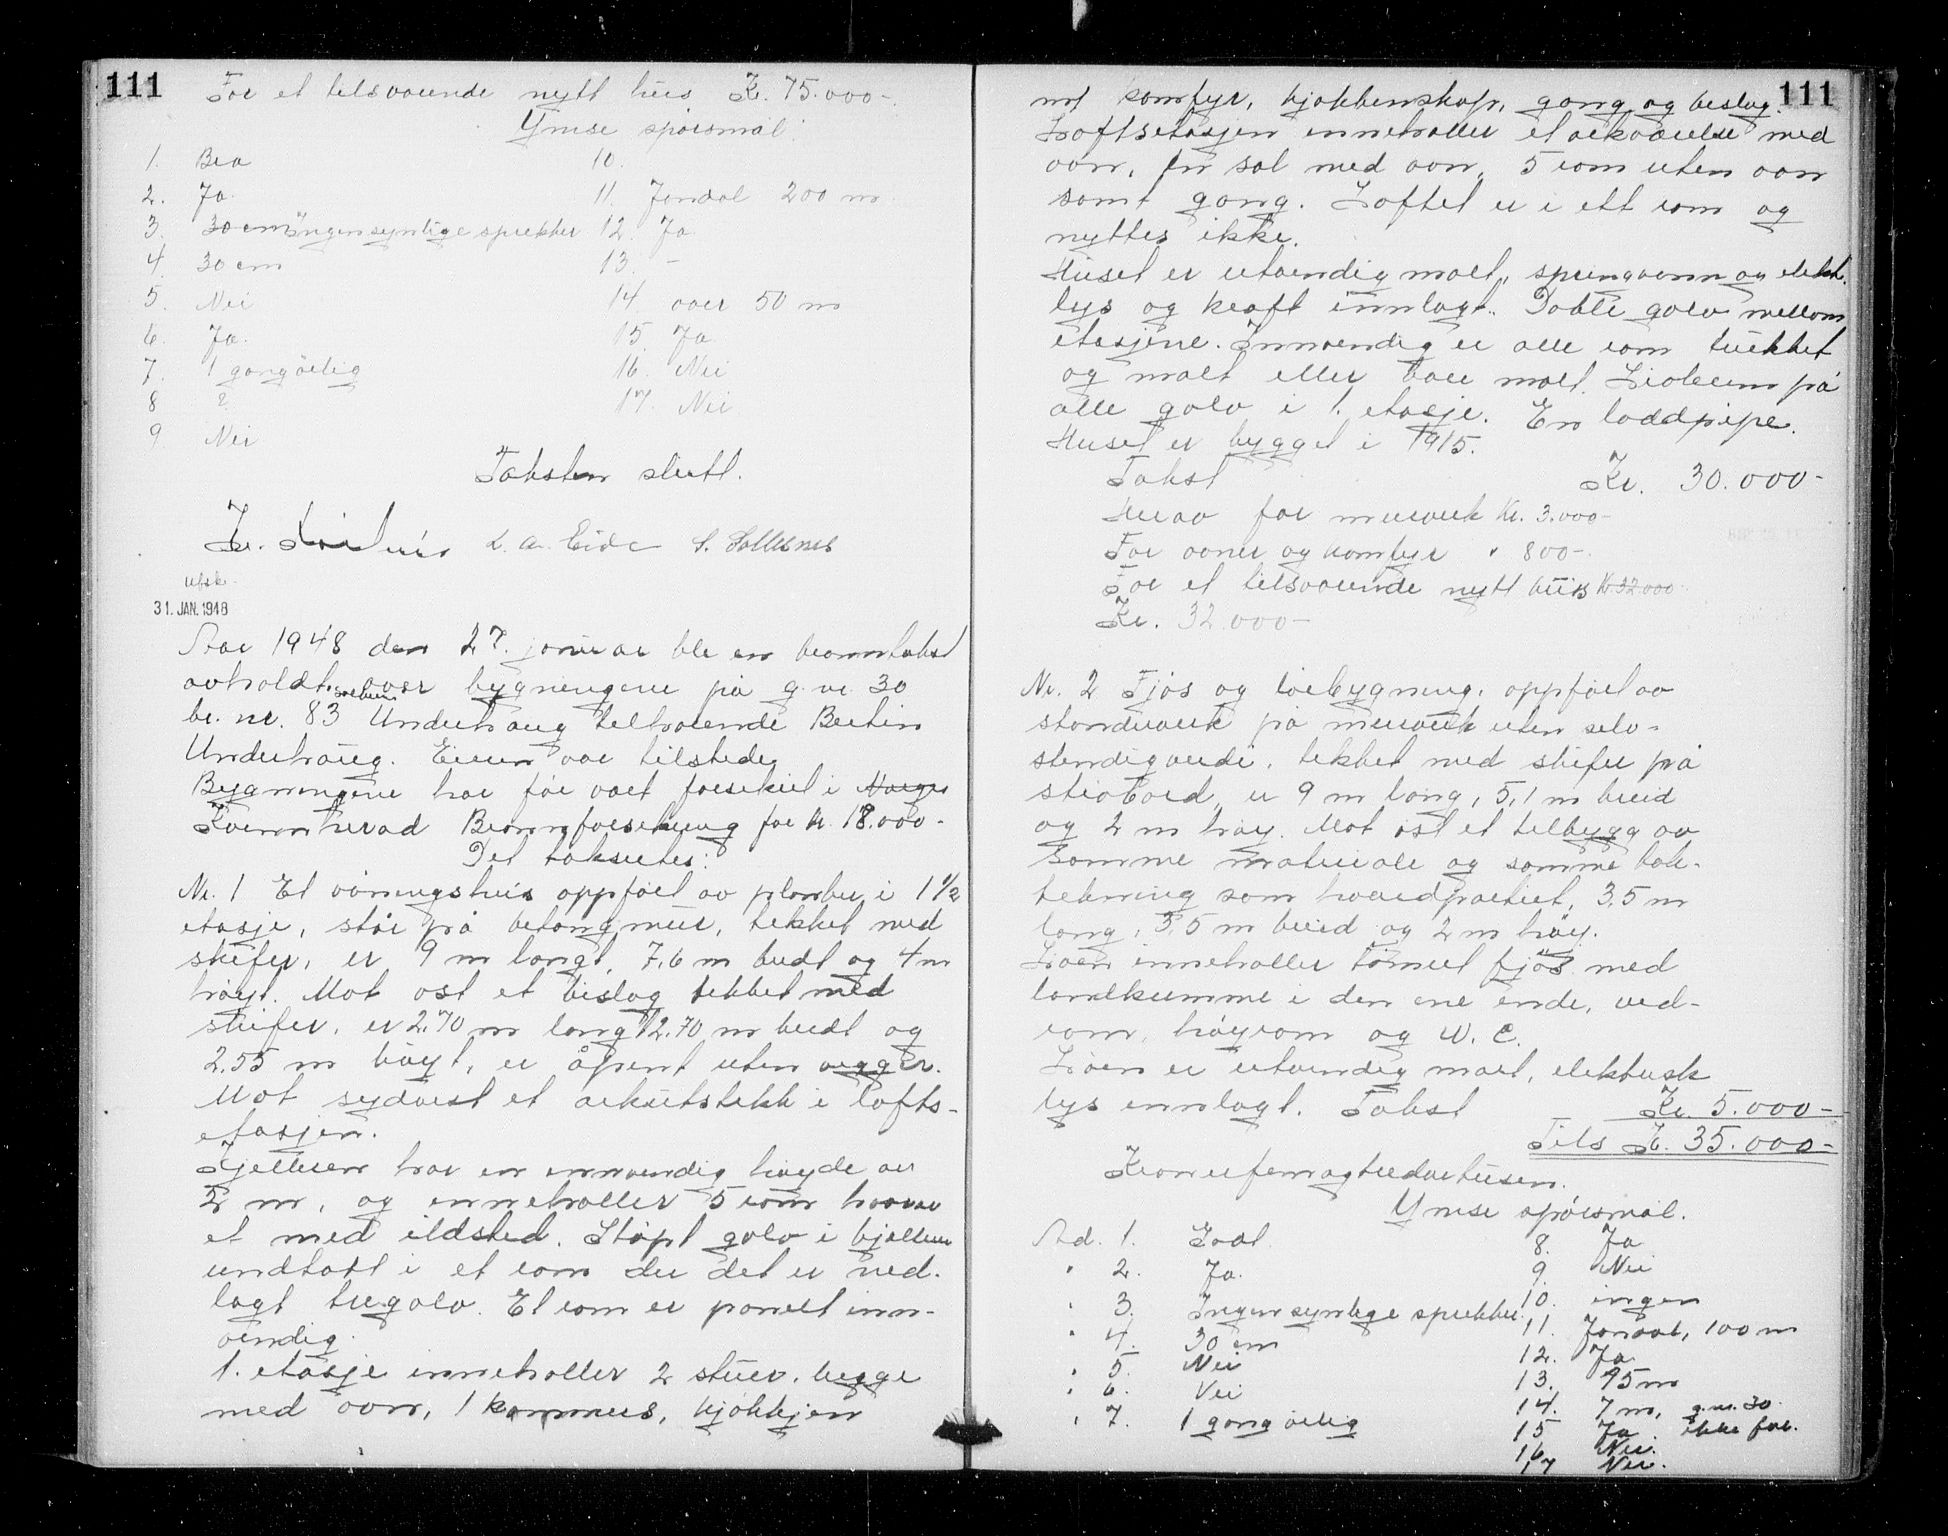 111
For et tilsvarende nytt hus Kr. 75.000-.
Ymse spørsmål:
1. Bra
2. Ja.
3. 30 cm Ingen synlige sprekker
4. 30 cm
5. Nei
6. Ja.
7. 1 gang årlig
8 ?
9. Nei
10.
11. Jondal 200 m.
12. Ja
13. –
14 over 50 m
15. Ja
16. Nei
17. Nei
Taksten slutt.
L. A. Eide S.
31. JAN. 1948
Aar 1948 den 27. januar ble en branntakst
avholdt over bygningene på g. nr. 30
br. nr. 83 Underhaug tilhørende Bertin
Underhaug. Eieren var tilstede
Bygningene har før vært forsikret i Norges
Kvinnherad Brannforsikring for kr. 18.000-
Det takseres:
Nr. 1 Et våningshus oppført av planker i 1 1/2
etasje, står på betongmur, tekket med
skifer, er 9 m langt, 7,6 m bredt og 4 m
høyt. Mot øst et bislag tekket med
skifer, er 2.70 m lang 2.70 m bredt og
2.55 m høyt, er åpent uten vegger.
Mot sydvest et arkutstikk i lofts-
etasjen.
Kjelleren har en innvendig høyde av
2 m, og inneholler 5 rom hvorav
et med ildsted. Støpt golv i kjelleren
undtatt i et rom der det er ned-
lagt tregolv. Et rom er panelt inn-
vendig.
1. etasje inneholler 2 stuer, begge
med ovn, 1 kammers, kjøkkjen
111
m/ komfyr, kjøkkenskap, gang og beslag.
Loftsetasjen inneholler et arkværelse med
ovn, en sal med ovn, 5 rom uten ovn
samt gang. Loftet er i ett rom og
nyttes ikke.
Huset er utvendig malt, springvann og elektr.
lys og kraft innlagt. Doble golv mellom
etasjene. Innvendig er alle rom trekket
og malt eller bare malt. Linoleum på
alle golv i 1. etasje. En loddpipe.
Huset er bygget i 1915.
Takst Kr. 30.000-
Herav for murverk Kr. 3.000-
For ovner og komfyr " 800-.
For et tilsvarende nytt huis Kr. 32.000
Kr. 32.000-
Nr. 2 Fjøs og løebygning, oppført av
standverk på murverk uten selv-
stendig verdi, tekket med skifer på
strøbord, er 9 m lang, 5,1 m breid
og 2 m høy. Mot øst et tilbygg av
samme materiale og samme tak-
tekning som hovedpartiet, 3,5 m
lang, 3,5 m breid og 2 m høy.
Løen inneholler tømret fjøs med
landkumme i den ene ende, ved-
rom, høyrom og W. C.
Løen er utvendig malt, elektrisk
lys innlagt. Takst Kr. 5.000-
Tils Kr. 35.000-
Kronerfemogtredvetusen.
Ymse spørsmål.
Ad. 1. Godt
" 2. Ja.
" 3. Ingen synlige sprekker
" 4. 30 cm
" 5. Nei
" 6. Nei
" 7. 1 gang årlig
8. Ja
9. Nei
10. ingen
11. Jondal, 100 m
12. Ja
13. 95 m
14. 7 m, g. nr. 30.
15 Ja. ikke fab.
16 Nei.
17 Nei.